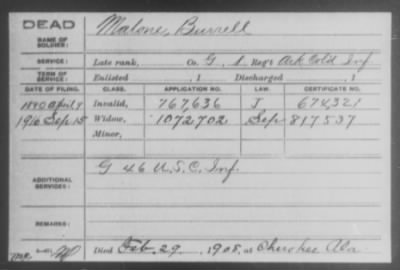 DEAD
NAME OF SOLDIER: Malone, Burrell
SERVICE: Late rank, Co. G, 1 Reg't Ark Cold Inf.
TERM OF SERVICE: Enlisted , 1 Discharged , 1
DATE OF FILING. CLASS. APPLICATION NO. LAW. CERTIFICATE NO.
1890 April 9 Invalid, 767,636 J 674,321
1916 Sep 15 Widow, 1072702 Sep 817537
Minor,
ADDITIONAL SERVICES: G 46 U.S.C. Inf.
REMARKS:
Died Feb. 29, 1908, at Cherokee Ala.